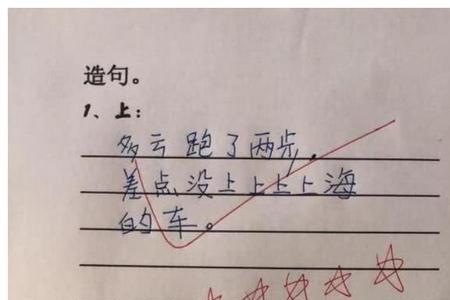 造句。
1、上:
多云跑了两步,
差点没上上上上海
的车。